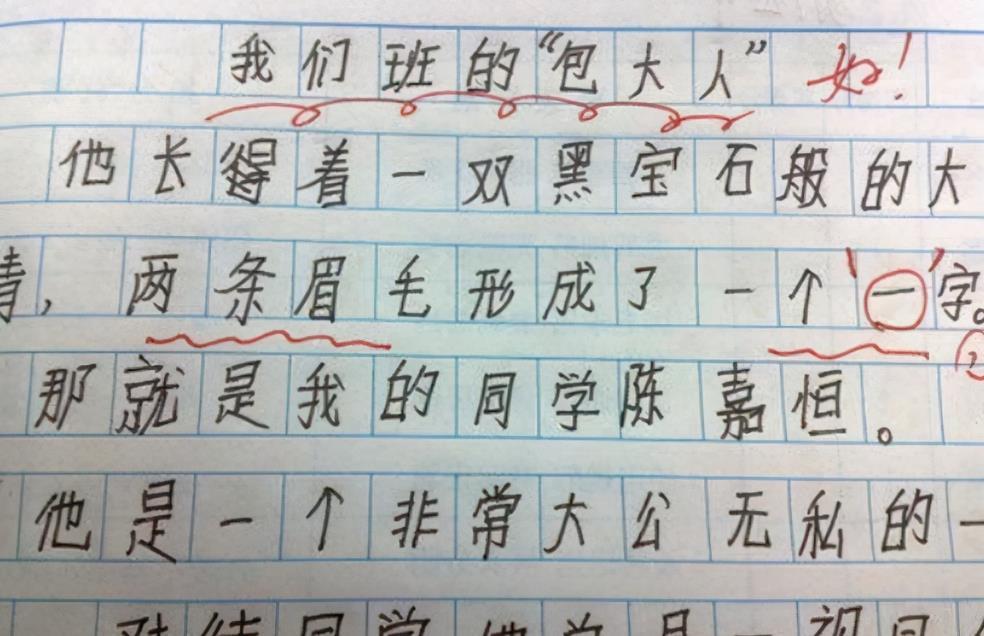 我们班的“包大人” 好！
他长得着一双黑宝石般的大
睛，两条眉毛形成了一个'一'字。
那就是我的同学陈嘉恒。
他是一个非常大公无私的一
对待同学